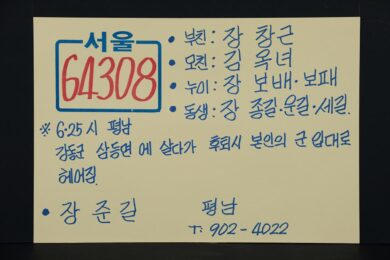 서울
64308
• 부친: 장 창근
• 모친: 김 옥녀
• 누이: 장 보배·보패
• 동생: 장 종길·운길·세길.
※ 6·25시 평남
강동군 삼등면에 살다가 후퇴시 본인의 군 입대로
헤어짐.
• 장준길 평남
T: 902-4022